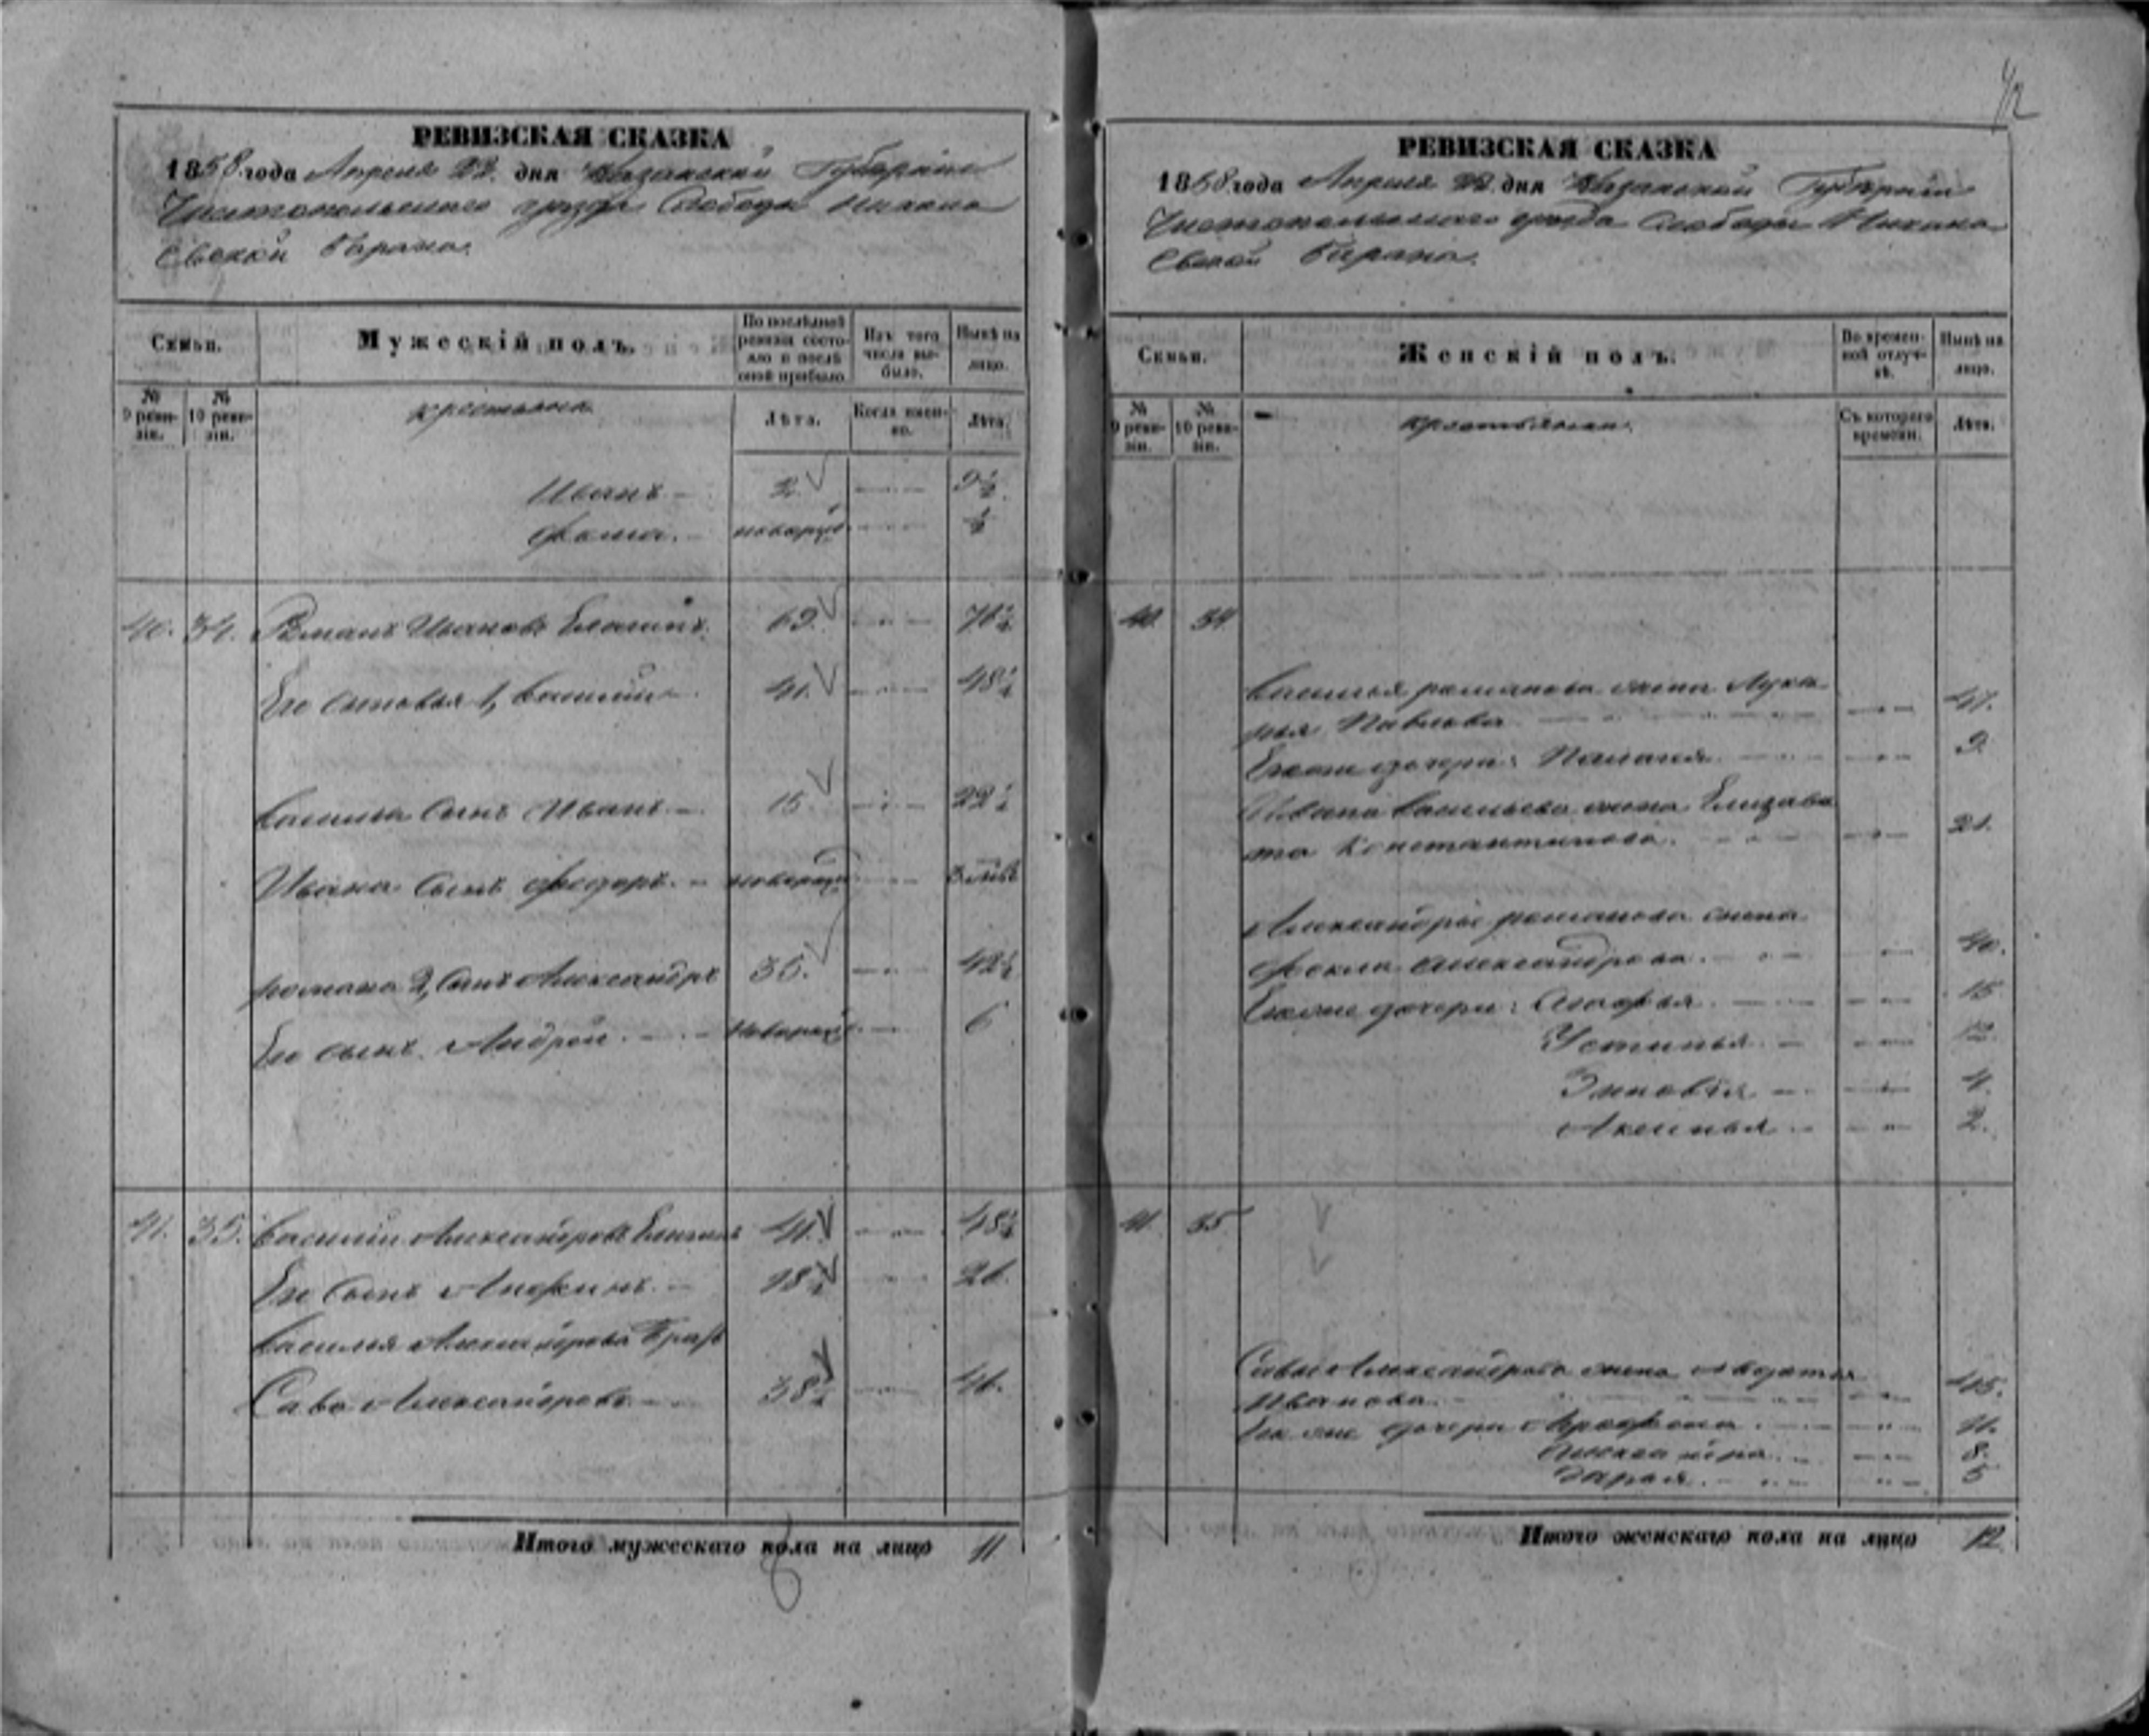 РЕВИЗСКАЯ СКАЗКА
1858 года Апреля 22 дня Казанской Губернии
Чистопольскаго уезда Слободы
Барана.
Семьи.
Мужескій полъ.
По послѣдней ревизіи состояло и послѣ оной прибыло.
Изъ того числа выбыло.
Нынѣ на лицо.
№ 9 ревизіи.
№ 10 ревизіи.
крестьяне
Лѣта.
Когда именно.
Лѣта.
Иванъ – 2 9½
Фома. – новорож ½
40. 34. Романъ Ивановъ 69. 76½
Его сыновья 1, Василий 41. 48½
Василья сынъ Иванъ – 15. 22½
Ивана сынъ Федоръ. – новорож
романа 2, сынъ Александръ 35. 42½
Его сынъ Андрей. – новорож 6
41. 35. Василий Александровъ 41. 48½
Его сынъ 18½ 26.
Василья Александрова братъ
Сава Александровъ – 38½ 46.
Итого мужескаго пола на лицо 11
РЕВИЗСКАЯ СКАЗКА
1858 года Апреля 22 дня Казанской Губернии
Чистопольскаго уезда Слободы
Барана.
Семьи.
Женскій полъ.
Во временной отлучкѣ.
Нынѣ на лицо.
№ 9 ревизіи.
№ 10 ревизіи.
крестьянки.
Съ котораго времени.
Лѣта.
40. 34.
Василья романова жена Лукерья Павлова 47.
Ихъ же дочери: Палагея 9
Ивана Васильева жена Елизавета Константинова. 21.
Александра романова жена
Фекла Александрова. 40.
Ихъ же дочери: Агафья 15
Устинья – 12
Зиновія – 4.
Аксинья – 2.
41. 35
Савы Александрова жена Авдотья
Иванова. 45.
Ихъ же дочери 11.
Александра. 8.
Дарья. 5
Итого женскаго пола на лицо 12.